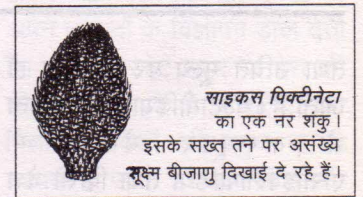 साइकस पिक्टीनेटा
का एक नर शंकु।
इसके सख्त तने पर असंख्य
सूक्ष्म बीजाणु दिखाई दे रहे हैं।